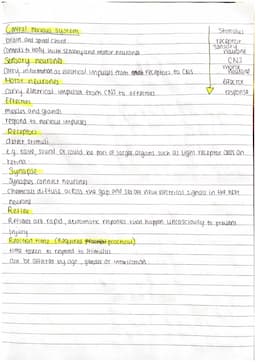 Central nervous system
brain and spinal chord
connects to body with sensory and motor neurons
Sensory neurons
carry information as electrical impulses from receptors to CNS
Motor neurons
carry electrical impulses from CNS to effectors
Effectors
muscles and glands
respond to nervous impulses
Receptors
detect stimuli
e.g. taste, sound or could be part of larger organs such as light receptor cells on
retina
Synapse
Synapses connect neurons
Chemicals diffuse across the gap and set off new electrical signals in the next
neurone
Reflex
Reflexes are rapid, automatic responses that happen unconsciously to prevent
injury
Reaction time (Required practical)
time taken to respond to stimulus
can be affected by age, gender or intoxication
Stimulus
receptor
sensory
neurone
CNS
motor
neurone
effector
response